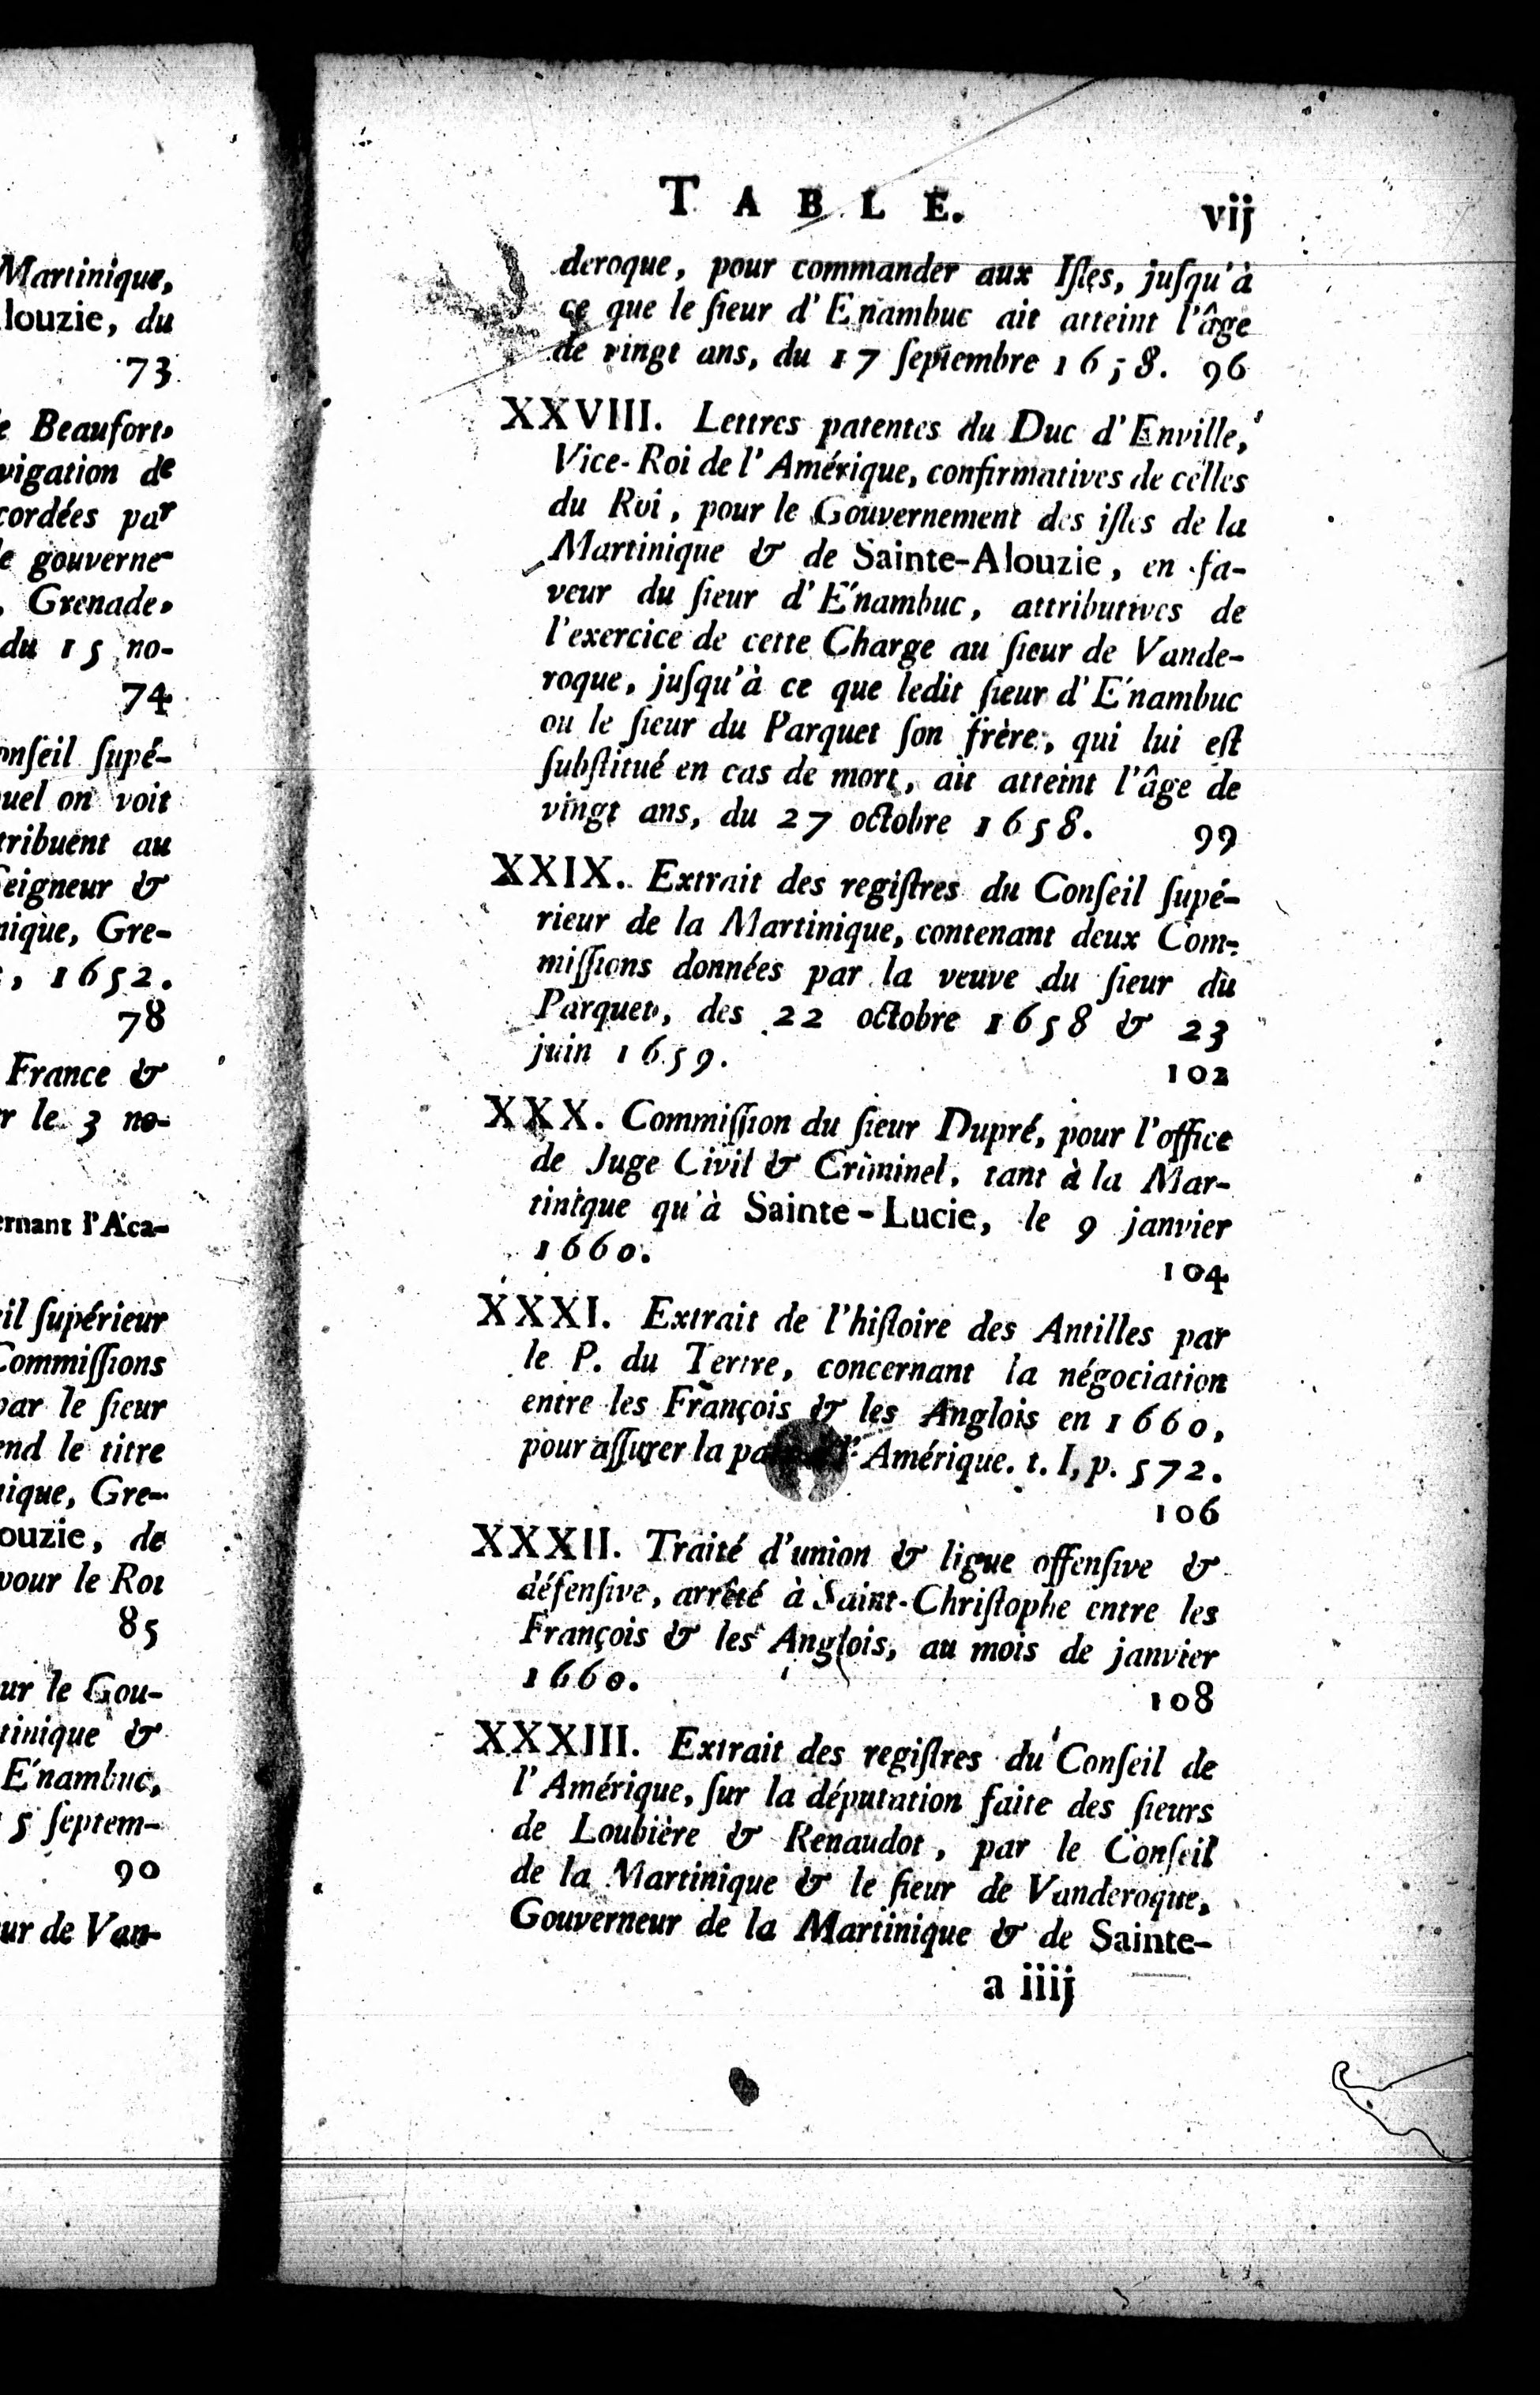 Martinique,
louzie, du
73
Beaufort,
vigation de
cordées par
gouverne
, Grenade,
du 15 no-
74
onſeil ſupé-
uel on voit
tribuent au
ſeigneur &
nique, Gre-
, 1652.
78
France &
r le 3 no-
ernant l'Aca-
il ſupérieur
Commiſſions
par le ſieur
end le titre
nique, Gre-
ouzie, de
pour le Roi
85
ur le Gou-
tinique &
E'nambuc,
5 ſeptem-
90
ur de Van-
TABLE. vij
deroque, pour commander aux Iſles, juſqu'à
ce que le ſieur d'Enambuc ait atteint l'âge
de vingt ans, du 17 ſeptembre 1658. 96
XXVIII. Lettres patentes du Duc d'Enville,
Vice-Roi de l'Amérique, confirmatives de celles
du Roi, pour le Gouvernement des iſles de la
Martinique & de Sainte-Alouzie, en fa-
veur du ſieur d'E'nambuc, attributives de
l'exercice de cette Charge au ſieur de Vande-
roque, juſqu'à ce que ledit ſieur d'E'nambuc
ou le ſieur du Parquet ſon frère, qui lui eſt
ſubſtitué en cas de mort, ait atteint l'âge de
vingt ans, du 27 octobre 1658. 99
XXIX. Extrait des regiſtres du Conſeil ſupé-
rieur de la Martinique, contenant deux Com-
miſſions données par la veuve du ſieur du
Parquet, des 22 octobre 1658 & 23
juin 1659. 102
XXX. Commiſſion du ſieur Dupré, pour l'office
de Juge Civil & Criminel, tant à la Mar-
tinique qu'à Sainte-Lucie, le 9 janvier
1660. 104
XXXI. Extrait de l'hiſtoire des Antilles par
le P. du Tertre, concernant la négociation
entre les François & les Anglois en 1660,
pour aſſurer la l'Amérique. t. I, p. 572.
106
XXXII. Traité d'union & ligue offenſive &
défenſive, arrêté à Saint-Chriſtophe entre les
François & les Anglois, au mois de janvier
1660. 108
XXXIII. Extrait des regiſtres du Conſeil de
l'Amérique, ſur la députation faite des ſieurs
de Loubière & Renaudot, par le Conſeil
de la Martinique & le ſieur de Vanderoque,
Gouverneur de la Martinique & de Sainte-
a iiij